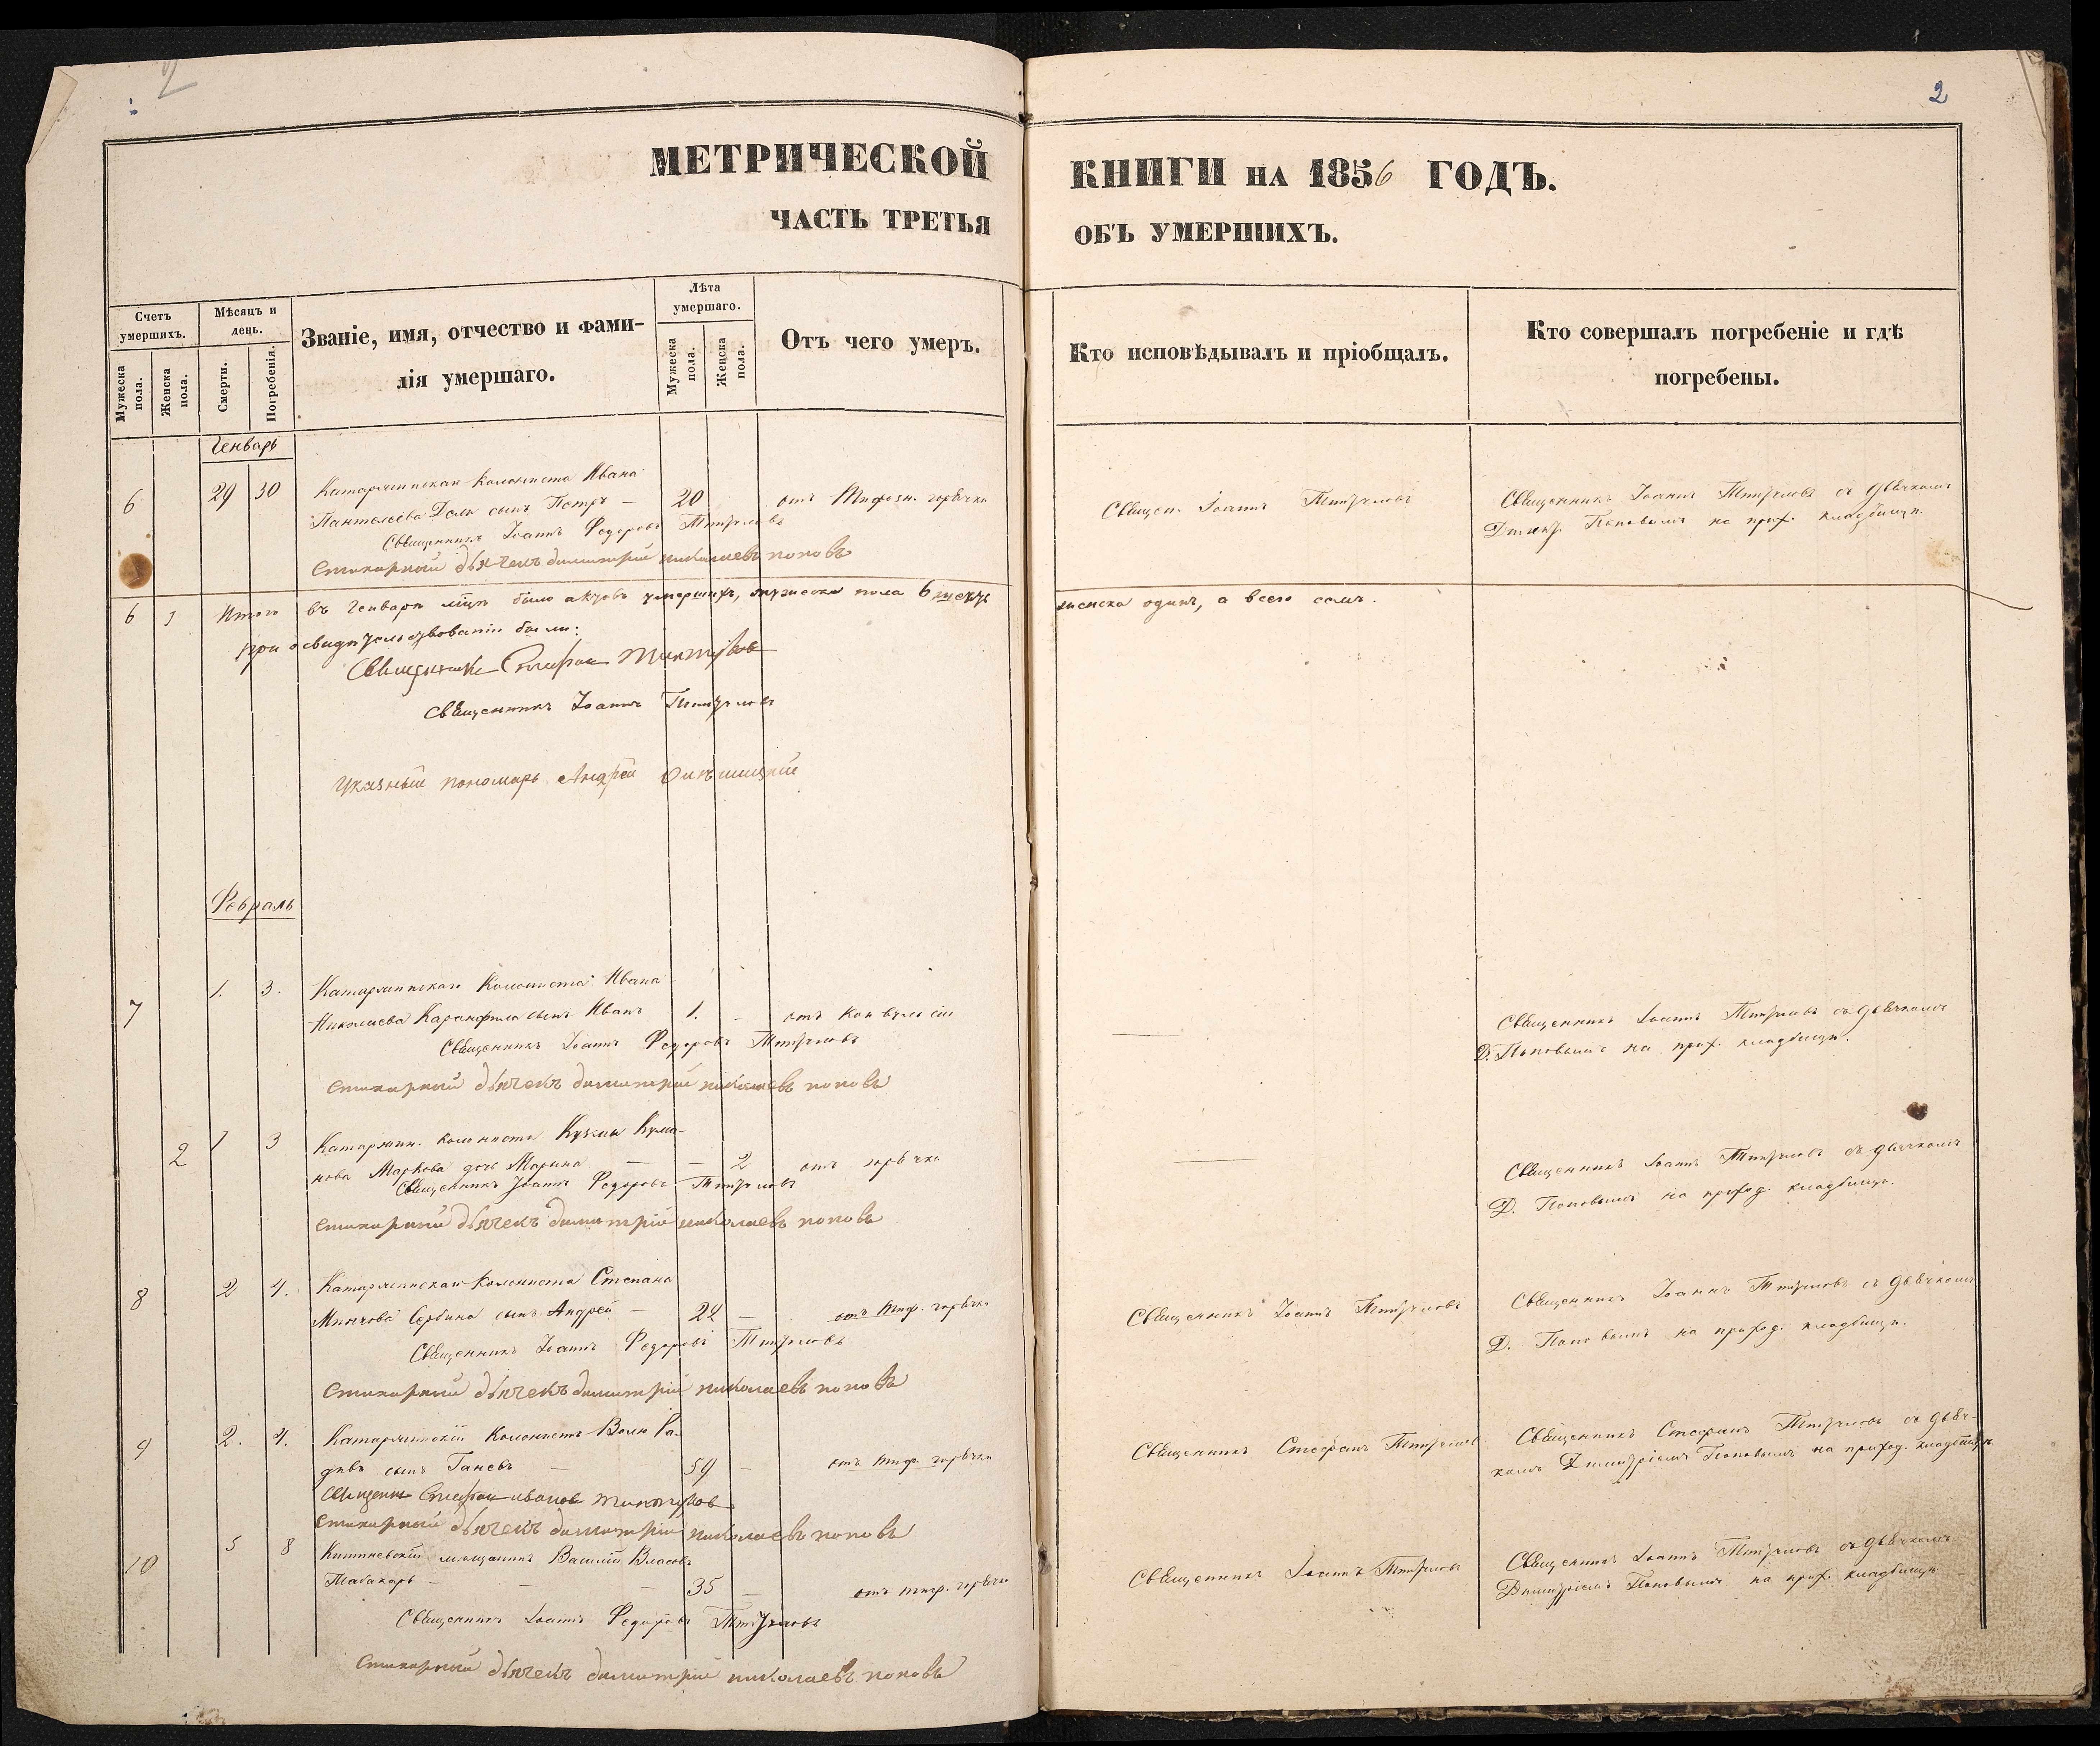 2
2
МЕТРИЧЕСКОЙ
КНИГИ НА 1856 ГОДЪ.
ЧАСТЬ ТРЕТЬЯ
ОБЪ УМЕРШИХЪ.
Счетъ умершихъ.
Мужеска пола.
Женска пола.
Мѣсяцъ и день.
Смерти.
Погребенія.
Званіе, имя, отчество и фами-
лія умершаго.
Лѣта умершаго.
Мужеска пола.
Женска пола.
Отъ чего умеръ.
Кто исповѣдывалъ и пріобщалъ.
Кто совершалъ погребеніе и гдѣ
погребены.
Генварь
6 29 30 Катаржинскаго колониста Ивана
Пантелѣева сынъ Петръ — 20 отъ Тифозн. горячки
Священникъ Іоаннъ Федоровъ
Стихарный дьячекъ димитрій николаевъ поповъ
Священ. Іоаннъ
Священникъ Іоаннъ съ дьячкомъ
Димитр. Поповымъ на прих. кладбищѣ.
6 1 Итого въ Генварѣ мѣцѣ было актовъ умершихъ, мужеска пола 6
женска одинъ, а всего семь.
при освидѣтельствованіи были:
Священникъ Стефан
Священникъ Іоаннъ
Указный пономарь Андрей
Февраль
7 1. 3. Катаржинскаго колониста Ивана
Николаева Карамфила сынъ Иванъ 1. — отъ конвульсіи
Священникъ Іоаннъ Федоровъ
Стихарный дьячекъ димитрій николаевъ поповъ
Священникъ Іоаннъ съ дьячкомъ
Д. Поповымъ на прих. кладбищѣ.
2 1 3 Катаржин. колониста Кузьмы Кума-
нова Маркова дочь Марина — — 2 отъ горячки
Священникъ Іоаннъ Федоровъ
Стихарный дьячекъ димитрій николаевъ поповъ
Священникъ Іоаннъ съ дьячкомъ
Д. Поповымъ на приход. кладбищѣ.
8 2 4. Катаржинскаго колониста Степана
Минчова Сербина сынъ Андрей — 22 — отъ тиф. горячки
Священникъ Іоаннъ Федоровъ
Стихарный дьячекъ димитрій николаевъ поповъ
Священникъ Іоаннъ
Священникъ Іоаннъ съ дьячкомъ
Д. Поповымъ на приход. кладбищѣ.
9 2. 4. Катаржинскій колонистъ Волю Ра-
девъ сынъ Ганевъ — 59 — отъ тиф. горячки
Священи Стефан иванов
Стихарный дьячекъ димитрій николаевъ поповъ
Священникъ Стефанъ
Священникъ Стефанъ съ дьяч-
комъ Димитріемъ Поповымъ на приход. кладбищѣ.
10 5 8 Кишиневскій мѣщанинъ Василій Власовъ
Табакарь — — — 35 — отъ тиф. горячки
Священникъ Іоаннъ Федоровъ
Стихарный дьячекъ димитрій николаевъ поповъ
Священникъ Іоаннъ
Священникъ Іоаннъ съ дьячкомъ
Димитріемъ Поповымъ на прих. кладбищѣ